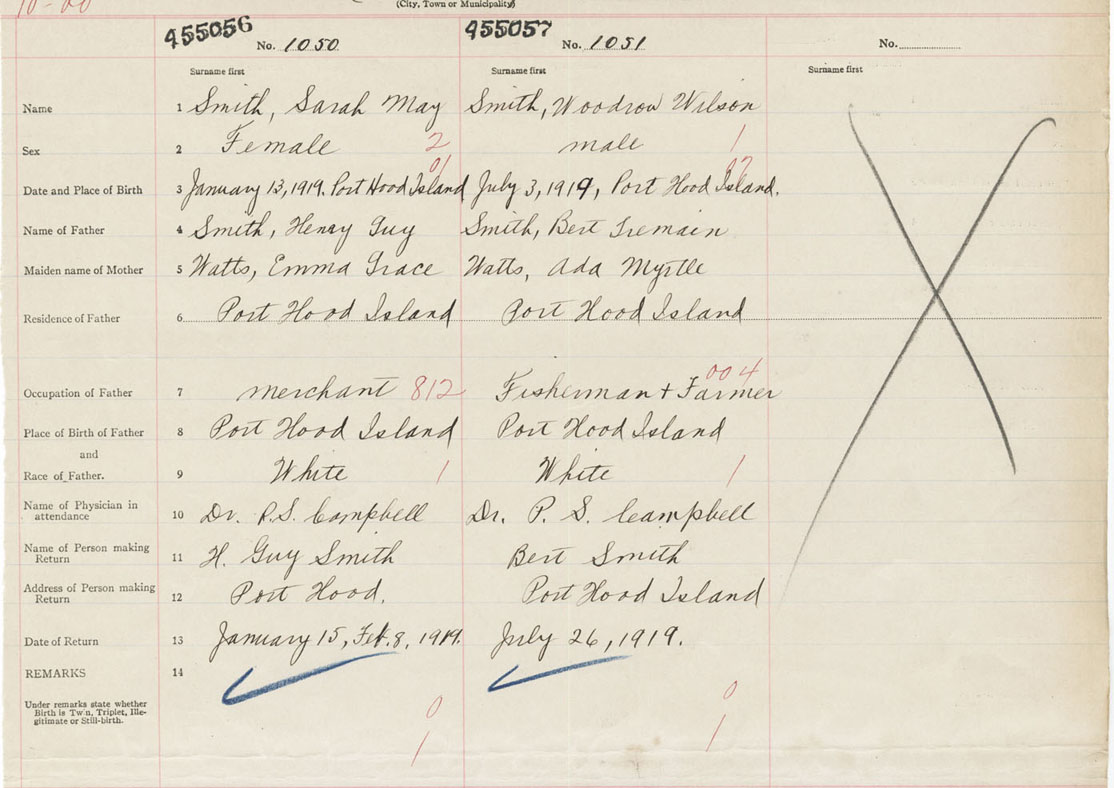 10-00
(City, Town or Municipality)
455056 No. 1050 455057 No. 1051 No.
Surname first Surname first Surname first
Name 1 Smith, Sarah May Smith, Woodrow Wilson
Sex 2 Female 2 male 1
01 07
Date and Place of Birth 3 January 13, 1919, Port Hood Island July 3, 1919, Port Hood Island.
Name of Father 4 Smith, Henry Guy Smith, Bert Tremain
Maiden name of Mother 5 Watts, Emma Grace Watts, Ada Myrtle
Residence of Father 6 Port Hood Island Port Hood Island
004
Occupation of Father 7 merchant 812 Fisherman + Farmer
Place of Birth of Father 8 Port Hood Island Port Hood Island
and
Race of Father. 9 White 1 White 1
Name of Physician in
attendance 10 Dr. P.S. Campbell Dr. P. S. Campbell
Name of Person making
Return 11 H. Guy Smith Bert Smith
Address of Person making
Return 12 Port Hood. Port Hood Island
Date of Return 13 January 15, Feb. 8, 1919. July 26, 1919.
REMARKS 14
Under remarks state whether
Birth is Twin, Triplet, Ille-
gitimate or Still-birth.
0 0
1 1